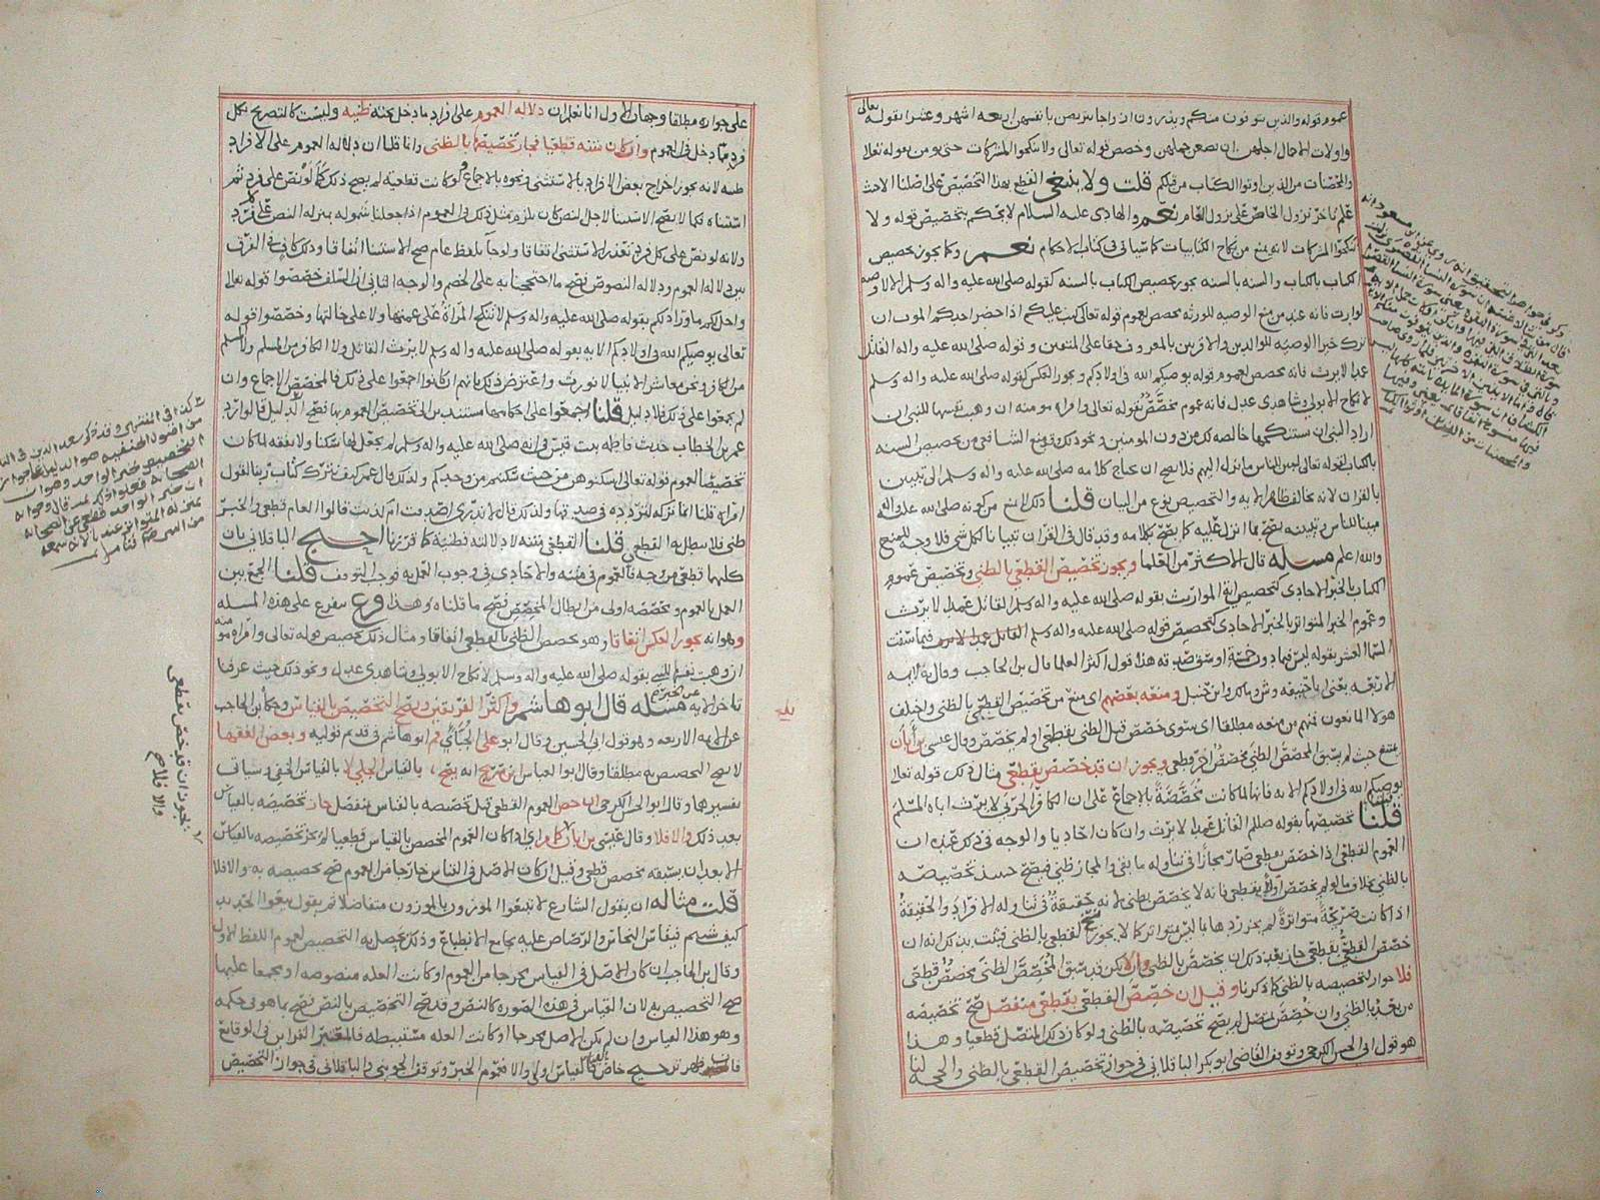 عموم قوله والذين يتوفون منكم ويذرون ازواجا يتربصن بانفسهن اربعه اشهر وعشرا بقوله تعالى
واولات الاحمال اجلهن ان يضعن حملهن وخصص قوله تعالى ولا تنكحوا المشركات حتى يومن بقوله تعالى
والمحصنات من الذين اوتوا الكتاب من قبلكم قلت ولا ينبغي القطع بهذا التخصيص على اصلنا الا حيث
علم تاخر نزول الخاص على نزول العام نعم والهادي عليه السلام لا يحكم بتخصيص قوله ولا
تنكحوا المشركات لانه يمنع من نكاح الكتابيات كما سياتي في كتاب الاحكام نعم وكما يجوز تخصيص
الكتاب بالكتاب والسنه بالسنه يجوز تخصيص الكتاب بالسنه كقوله صلى الله عليه واله وسلم الا لا وصيه
لوارث فانه عند من منع الوصيه للورثه مخصص لعموم قوله تعالى كتب عليكم اذا حضر احدكم الموت ان
ترك خيرا الوصيه للوالدين والاقربين بالمعروف حقا على المتقين وقوله صلى الله عليه واله القاتل
عمدا لا يرث فانه مخصص لعموم قوله يوصيكم الله في اولادكم ويجوز العكس لقوله صلى الله عليه واله وسلم
لا نكاح الا بولي وشاهدي عدل فانه عموم مخصص بقوله تعالى وامراه مومنه ان وهبت نفسها للنبي ان
اراد النبي ان يستنكحها خالصه لك من دون المومنين ونحو ذلك ومنع الشافعي من تخصيص السنه
بالكتاب لقوله تعالى لتبين للناس ما نزل اليهم فلا يصح ان يحتاج كلامه صلى الله عليه واله وسلم الى تبيين
بالقران لانه مخالف ظاهر الايه والتخصيص نوع من البيان قلنا ذلك لا يمنع من كونه صلى الله عليه واله
مبينا للناس وتبيينه يصح بما انزل عليه كما يصح بكلامه وقد قال في القران تبيانا لكل شي فلا وجه للمنع
والله اعلم مسله قال الاكثر من العلما ويجوز تخصيص القطعي بالظني وتخصيص عموم
الكتاب بالخبر الاحادي كتخصيص ايه المواريث بقوله صلى الله عليه واله وسلم القاتل عمدا لا يرث
وعموم الخبر المتواتر بالخبر الاحادي كتخصيص قوله صلى الله عليه واله وسلم فيما سقت
السما العشر بقوله ليس فيما دون خمسة اوسق صدقه هذا قول اكثر العلما قال ابن الحاجب وقال به الايمه
الاربعه يعني ابا حنيفه وش ومالك وابن حنبل ومنعه بعضهم اي منع من تخصيص القطعي بالظني واختلف
هولا المانعون فمنهم من منعه مطلقا اي سوى خصص قبل الظني بقطعي او لم يخصص وقال عيسى بن ابان
يمتنع حيث لم يسبق المخصص الظني مخصص اخر قطعي ويجوز ان قد خصص بقطعي مثال ذلك قوله تعالى
يوصيكم الله في اولادكم الايه فانها لما كانت مخصصة بالاجماع على ان الكافر الحربي لا يرث اباه المسلم
قلنا تخصيصها بقوله صللم القاتل عمدا لا يرث وان كان احاديا والوجه في ذلك عنده ان
العموم القطعي اذا خصص بقطعي صار مجازا في تناوله ما بقي والمجاز ظني فيصح حينئذ تخصيصه
بالظني بخلاف ما لو لم يخصص اولا بقطعي فانه لا يخصص بظني لانه حقيقة في تناوله الافراد والحقيقة
اذا كانت صريحة متواترة لم يجز ردها بما ليس متواتر كما لا يجوز نسخ القطعي بالظني فثبت بذلك انه ان
خصص القطعي بقطعي جاز بعد ذلك ان يخصص بالظني والا يكن قد سبق المخصص الظني مخصص قطعي
فلا جواز لتخصيصه بالظني كما ذكرنا وقيل ان خصص القطعي بقطعي منفصل صح تخصيصه
من بعد بالظني وان خصص بمتصل لم يصح تخصيصه بالظني ولو كان ذلك المتصل قطعيا وهذا
هو قول ابي الحسن الكرخي وتوقف القاضي ابو بكر الباقلاني في جواز تخصيص القطعي بالظني والحجه لنا
على جوازه مطلقا وجهان الاول انا نعلم ان دلاله العموم على افراد ما دخل تحته ظنيه وليست كالتصريح بكل
فرد مما دخل في العموم وان كان متنه قطعيا فجاز تخصيصه بالظني وانما قلنا ان دلاله العموم على الافراد
ظنيه لانه يجوز اخراج بعض الافراد بالاستثنى ونحوه بالاجماع ولو كانت قطعية لم يصح ذلك كما لو نص على فرد ثم
استثناه فكما لا يصح الاستثنا لاجل النص كان يلزم مثل ذلك في العموم اذا جعلنا شموله بمنزله النص على كل فرد
ولانه لو نص على كل فرد تعذر الاستثنى اتفاقا ولو جا بلفظ عام صح الاستثنا اتفاقا وذلك كاف في الفرق
بين دلاله العموم ودلاله النصوص فصح ما احتججنا به على الخصم والوجه الثاني ان السلف خصصوا قوله تعالى
واحل لكم ما ورا ذلكم بقوله صلى الله عليه واله وسلم لا تنكح المرأة على عمتها ولا على خالتها وخصصوا قوله
تعالى يوصيكم الله في اولادكم الايه بقوله صلى الله عليه واله وسلم لا يرث القاتل ولا الكافر من المسلم ولا المسلم
من الكافر ونحن معاشر الانبيا لا نورث واعترض ذلك بانهم ان كانوا اجمعوا على ذلك فالمخصص الاجماع وان
لم يجمعوا على ذلك فلا دليل قلنا اجمعوا على حكمها مستندين الى تخصيص العموم بها فصح الدليل فالوا رد
عمر بن الخطاب حديث فاطمه بنت قيس في انه صلى الله عليه واله وسلم لم يجعل لها سكنا ولا نفقه لما كان
تخصيصا لعموم قوله تعالى اسكنوهن من حيث سكنتم من وجدكم ولذلك قال عمر كيف نترك كتاب ربنا لقول
امراه قلنا انما تركه لتردده في صدقها ولذلك قال لا ندري اصدقت ام كذبت قالوا العام قطعي والخبر
ظني فلا يبطل به القطعي قلنا القطعي متنه لا دلالته فظنية كما قررنا احتج الباقلاني بان
كليهما قطعي من وجه فالعموم في متنه والاحادي في وجوب العمل به فوجب التوقف قلنا الجمع بين
العمل بالعموم ومخصصه اولى من ابطال المخصص فصح ما قلناه وهذا فرع يتفرع على هذه المسله
وهو انه يجوز العكس اتفاقا وهو تخصيص الظني بالقطعي اتفاقا ومثال ذلك تخصيص قوله تعالى وامراه مومنه
ان وهبت نفسها للنبي بقوله صلى الله عليه واله وسلم لا نكاح الا بولي وشاهدي عدل ونحو ذلك حيث عرفنا
تاخر الايه عن الخبر مسله قال ابو هاشم واكثر الفريقين ويصح التخصيص بالقياس وحكاه ابن الحاجب
عن الايمه الاربعه وهو قول ابي الحسين وقال ابو علي الجبائي وابو هاشم في قديم قوليه وبعض الفقها
لا يصح التخصيص به مطلقا وقال ابو العباس ابن سريج انه يصح بالقياس الجلي لا بالقياس الخفي وسياتي
تفسيرهما وقال ابو الحسن الكرخي ان خص العموم القطعي قبل تخصيصه بالقياس بمنفصل جاز تخصيصه بالقياس
بعد ذلك والا فلا وقال عيسى بن ابان كما مر اي اذا كان العموم المخصص بالقياس قطعيا لم يجز تخصيصه بالقياس
الا بعد ان يسبقه مخصص قطعي وقيل ان كان الاصل في القياس خارجا من العموم صح تخصيصه به والا فلا
قلت مثاله ان يقول الشارع لا تبيعوا الموزون بالموزون متفاضلا ثم يقول بيعوا الحديد
كيف شيتم فيقاس النحاس والرصاص عليه بجامع الانطباع وذلك يحصل به التخصيص لعموم اللفظ الاول
وقال ابن الحاجب ان كان الاصل في القياس مخرجا من العموم او كانت العله منصوصه او مجمعا عليها
صح التخصيص به لان القياس في هذه الصوره كالنص وقد صح التخصيص بالنص فصح بما هو في حكمه
وهو هذا القياس وان لم يكن الاصل مخرجا او كانت العله مستنبطه فالمعتبر القراين في الوقايع
فان ظهر ترجيح خاص فالقياس اولى والا فعموم الخبر وتوقف الجويني والباقلاني في جواز التخصيص
يجوز ان قد خص بقطعي
والا فلا صح